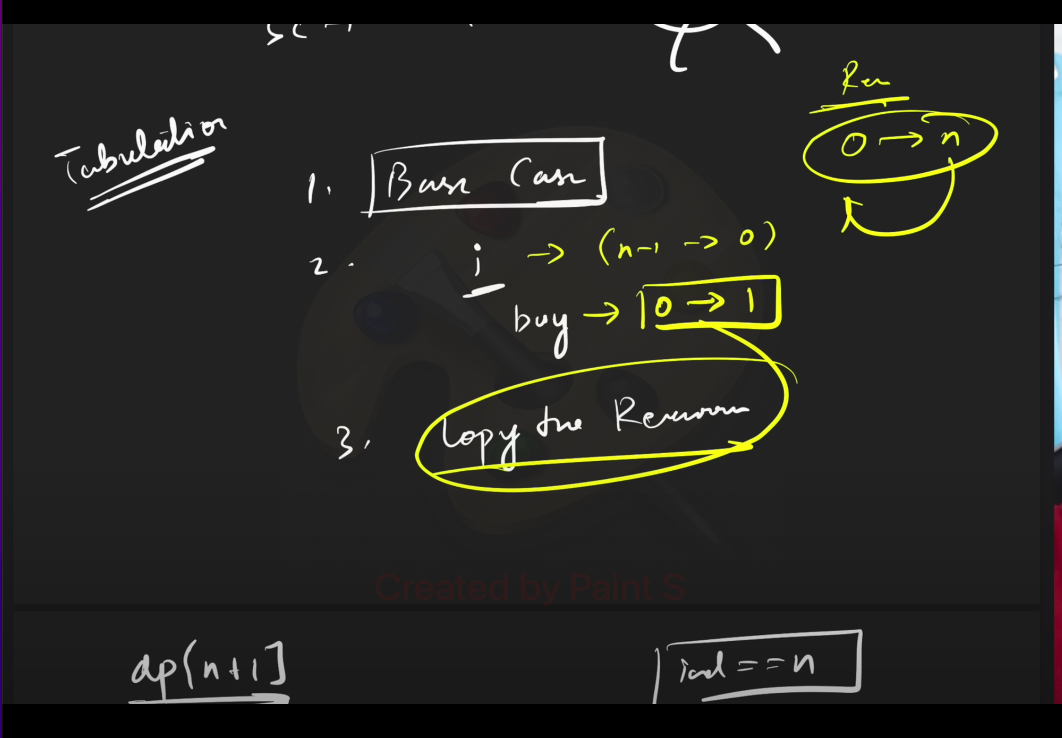 Rec
0 → n
Tabulation
1. Base Case
2. i → (n-1 → 0)
buy → 0 → 1
3. Copy the Recurrence
Created by Paint S
dp[n+1]
ind == n